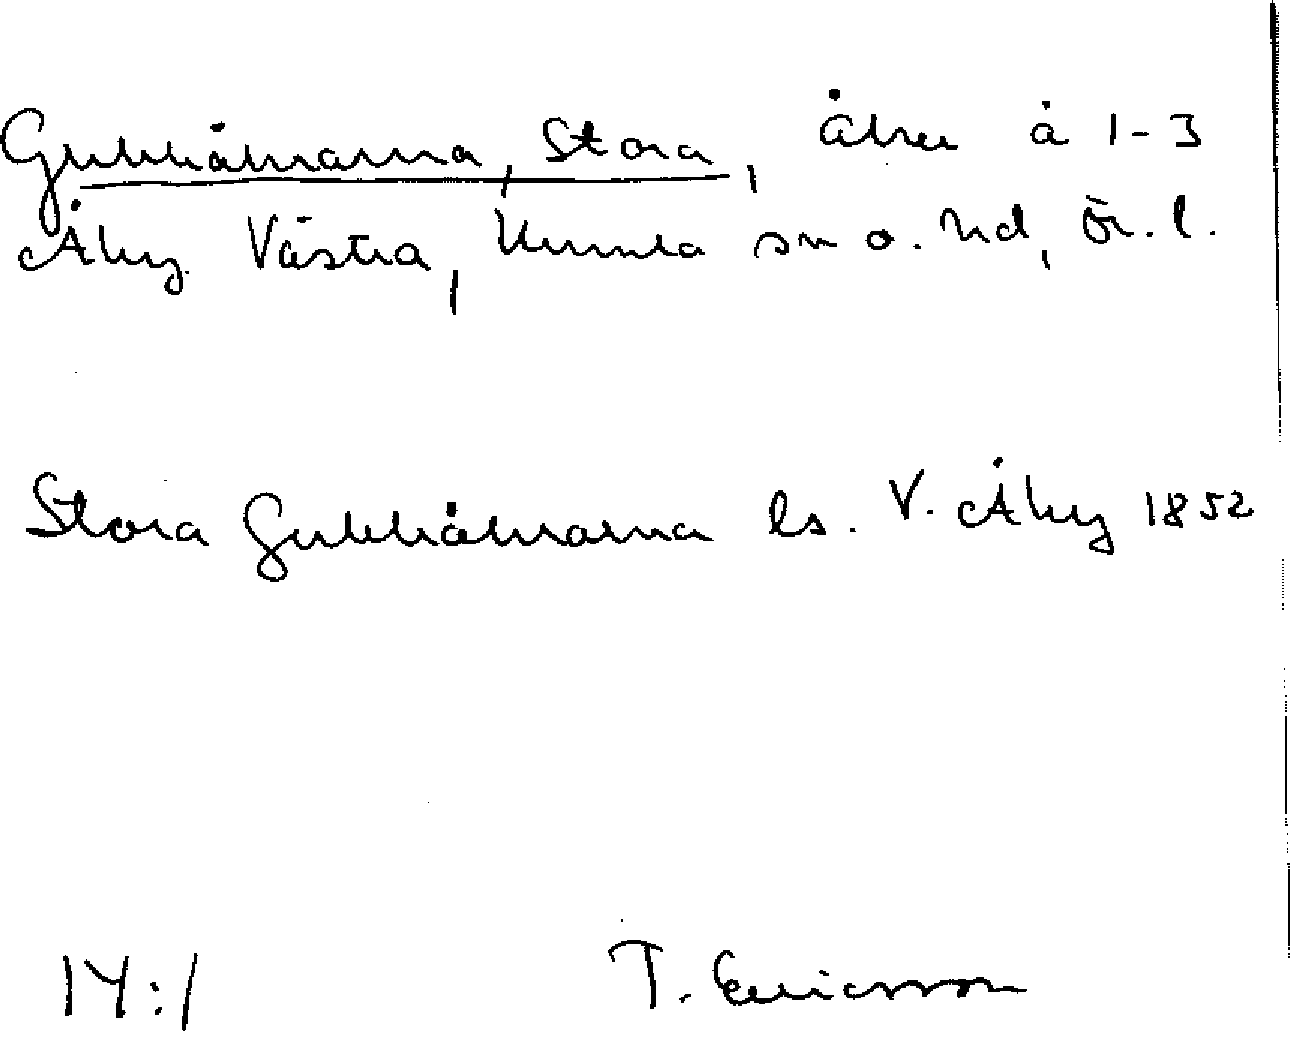 Gubbåkrarna, Stora, åker å 1-3
Åby Västra, Kumla sn o. hd, Ör. l.
Stora Gubbåkrarna ls. V. Åby 1852
14:1 T. Ericsson